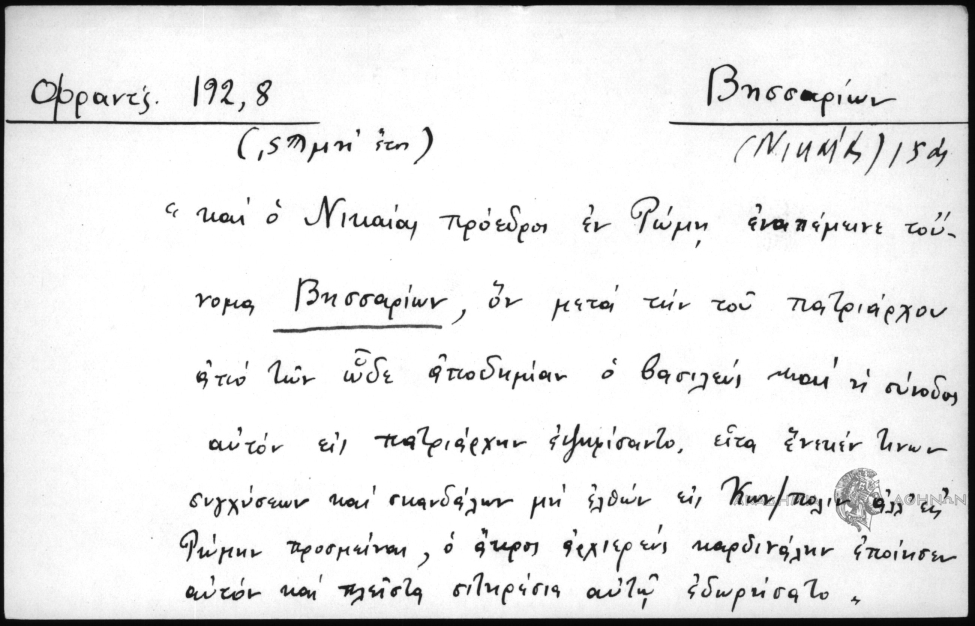 Σφραντζ. 192,8
Βησσαρίων
(͵ϛϠμη´ ἔτη)
(Νικαίας) 15ος
“ καί ὁ Νικαίας πρόεδρος ἐν Ρώμῃ ἐναπέμεινε τοὔ-
νομα Βησσαρίων, ὅν μετά τήν τοῦ πατριάρχου
ἀπό τῶν ὧδε ἀποδημίαν ὁ βασιλεύς καί ἡ σύνοδος
αὐτόν εἰς πατριάρχην ἐψηφίσαντο, εἶτα ἕνεκέν τινων
συγχύσεων καί σκανδάλων μή ἐλθών εἰς Κων/πολιν ἀλλ’ εἰς
Ρώμην προσμείναι, ὁ ἄκρος ἀρχιερεύς καρδινάλην ἐποίησεν
αὐτόν καί πλεῖστα σιτηρέσια αὐτῷ ἐδωρήσατο „
ΑΘΗΝΩΝ